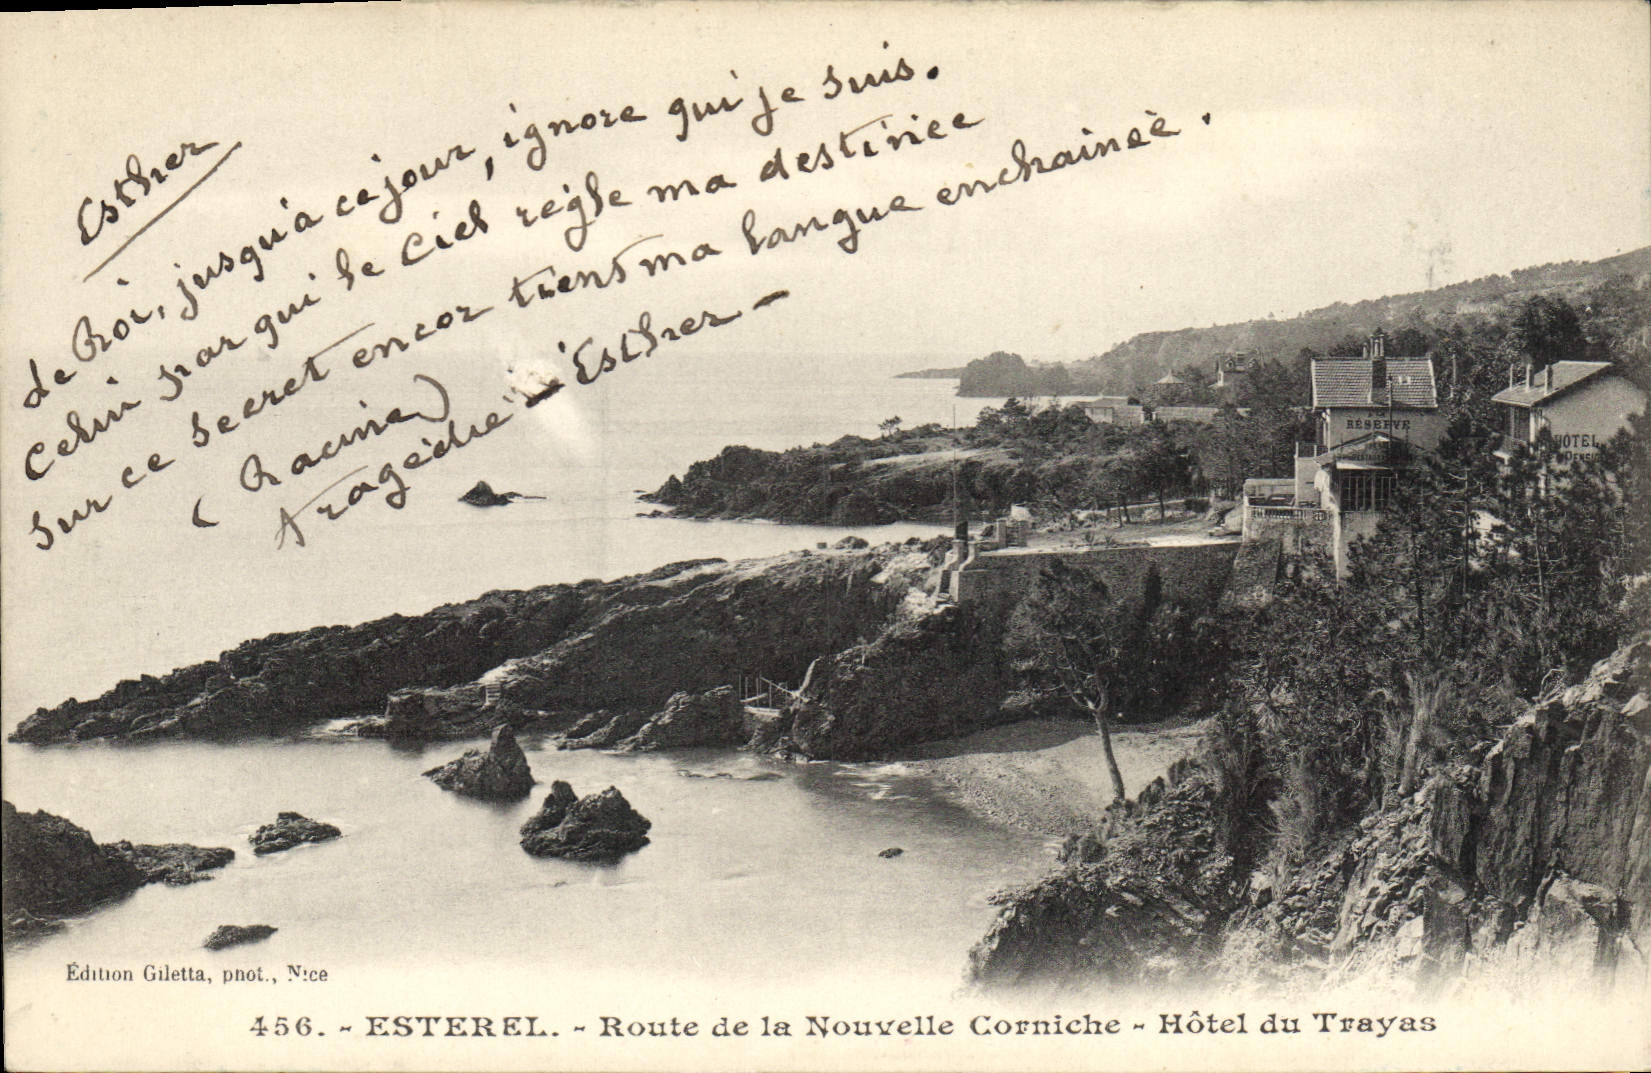 Esther
Le Roi, jusqu'à ce jour, ignore qui je suis.
Celui par qui le Ciel règle ma destinée
Sur ce secret encor tient ma langue enchainée.
(Racine)
tragédie - "Esther -
RÉSERVE
HÔTEL
PENSION
Édition Giletta, phot., Nice
456. - ESTEREL. - Route de la Nouvelle Corniche - Hôtel du Trayas